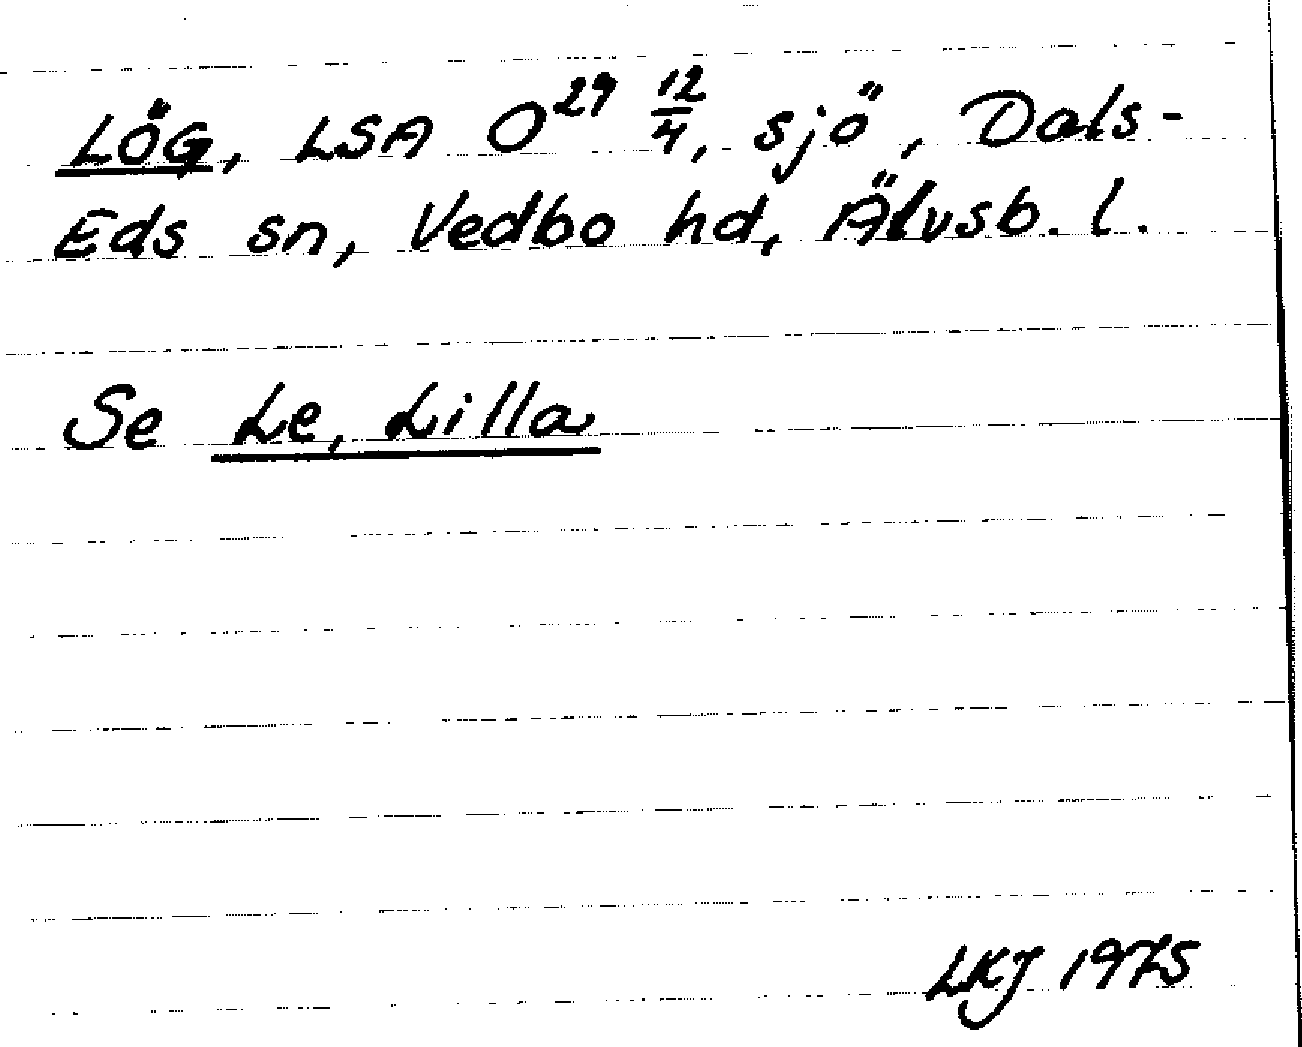 LÖG, LSA O²⁹ 12/4, sjö, Dals-
Eds sn, Vedbo hd, Älvsb. l.
Se Le, Lilla
LKJ 1975